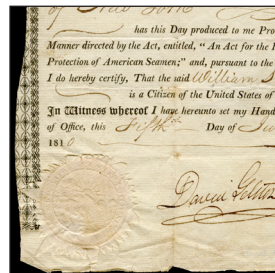 of New York
has this Day produced to me Pro
Manner directed by the Act, entitled, "An Act for the
Protection of American Seamen;" and, pursuant to the
I do hereby certify, That the said William
is a Citizen of the United States of
In Witness whereof I have hereunto set my Hand
of Office, this Fifth Day of
1810
David